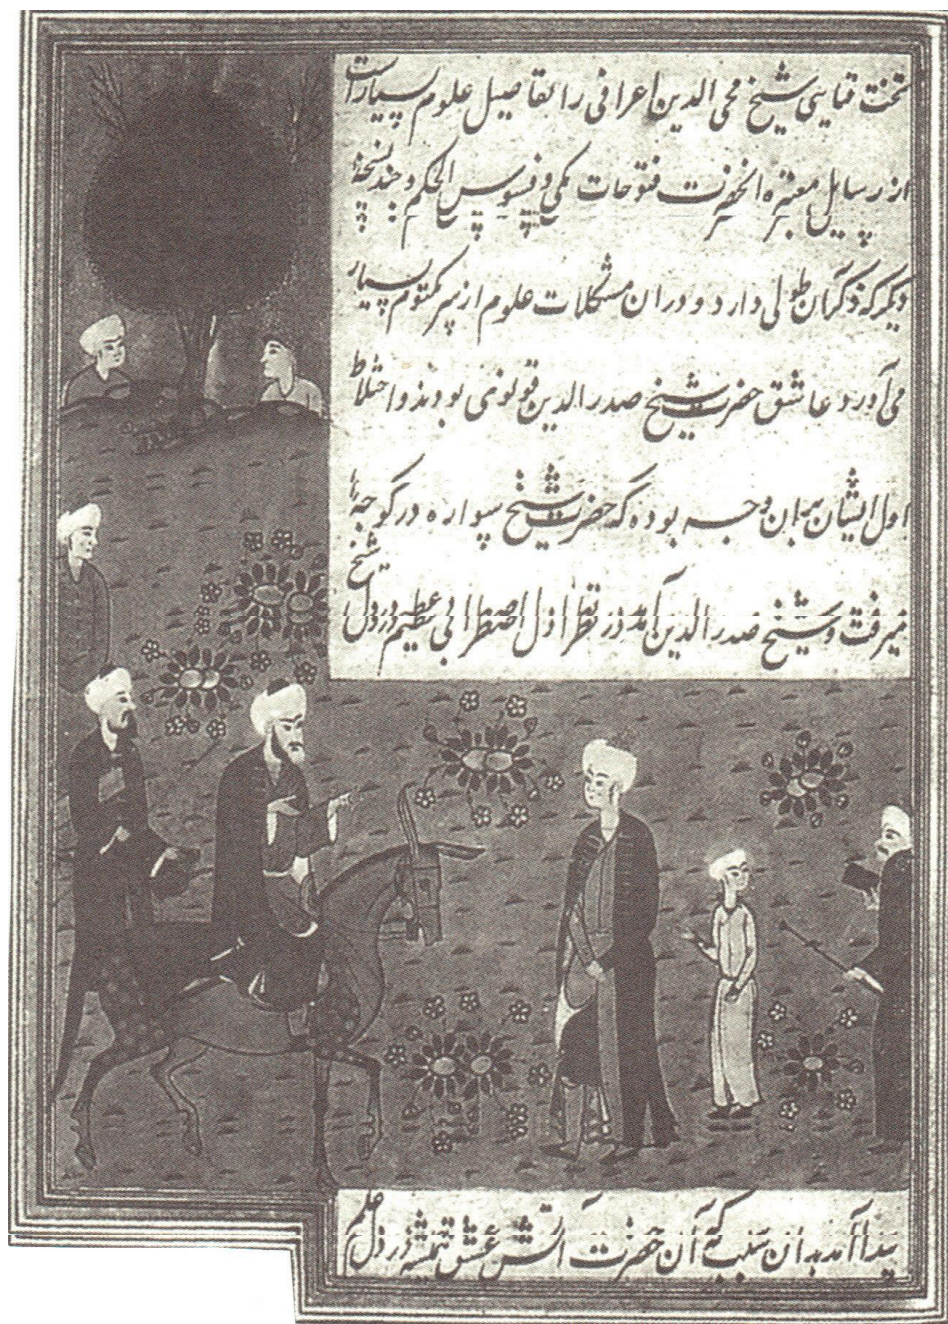 تخت فنایی شیخ محی الدین اعرافی را بقاصیل علوم بسیارات
از رسایل معتبره انحضرت فتوحات مکی و فسوس الحکم و چند نسخهٔ
دیگر که ذکر آن طولی دارد و دران مشکلات علوم از سر مکتوم بسیار
می آورد عاشق حضرت شیخ صدر الدین قونوی بودند و اختلاط
اول ایشان بدان وجه بوده که حضرت شیخ سواره در کوچهٔ
میرفت و شیخ صدر الدین آمد در نظر اول اضطرابی عظیم در دل شیخ
پیدا آمد بدان سبب که آن حضرت آتش عشق در دل